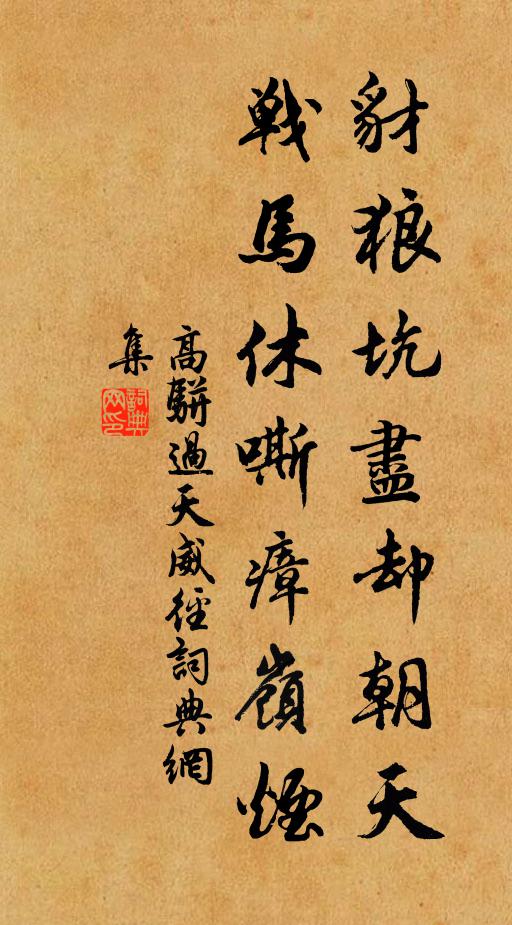 豺狼坑盡却朝天
戰馬休嘶瘴嶺煙
高駢過天威徑詞典網
集
詞典
网印